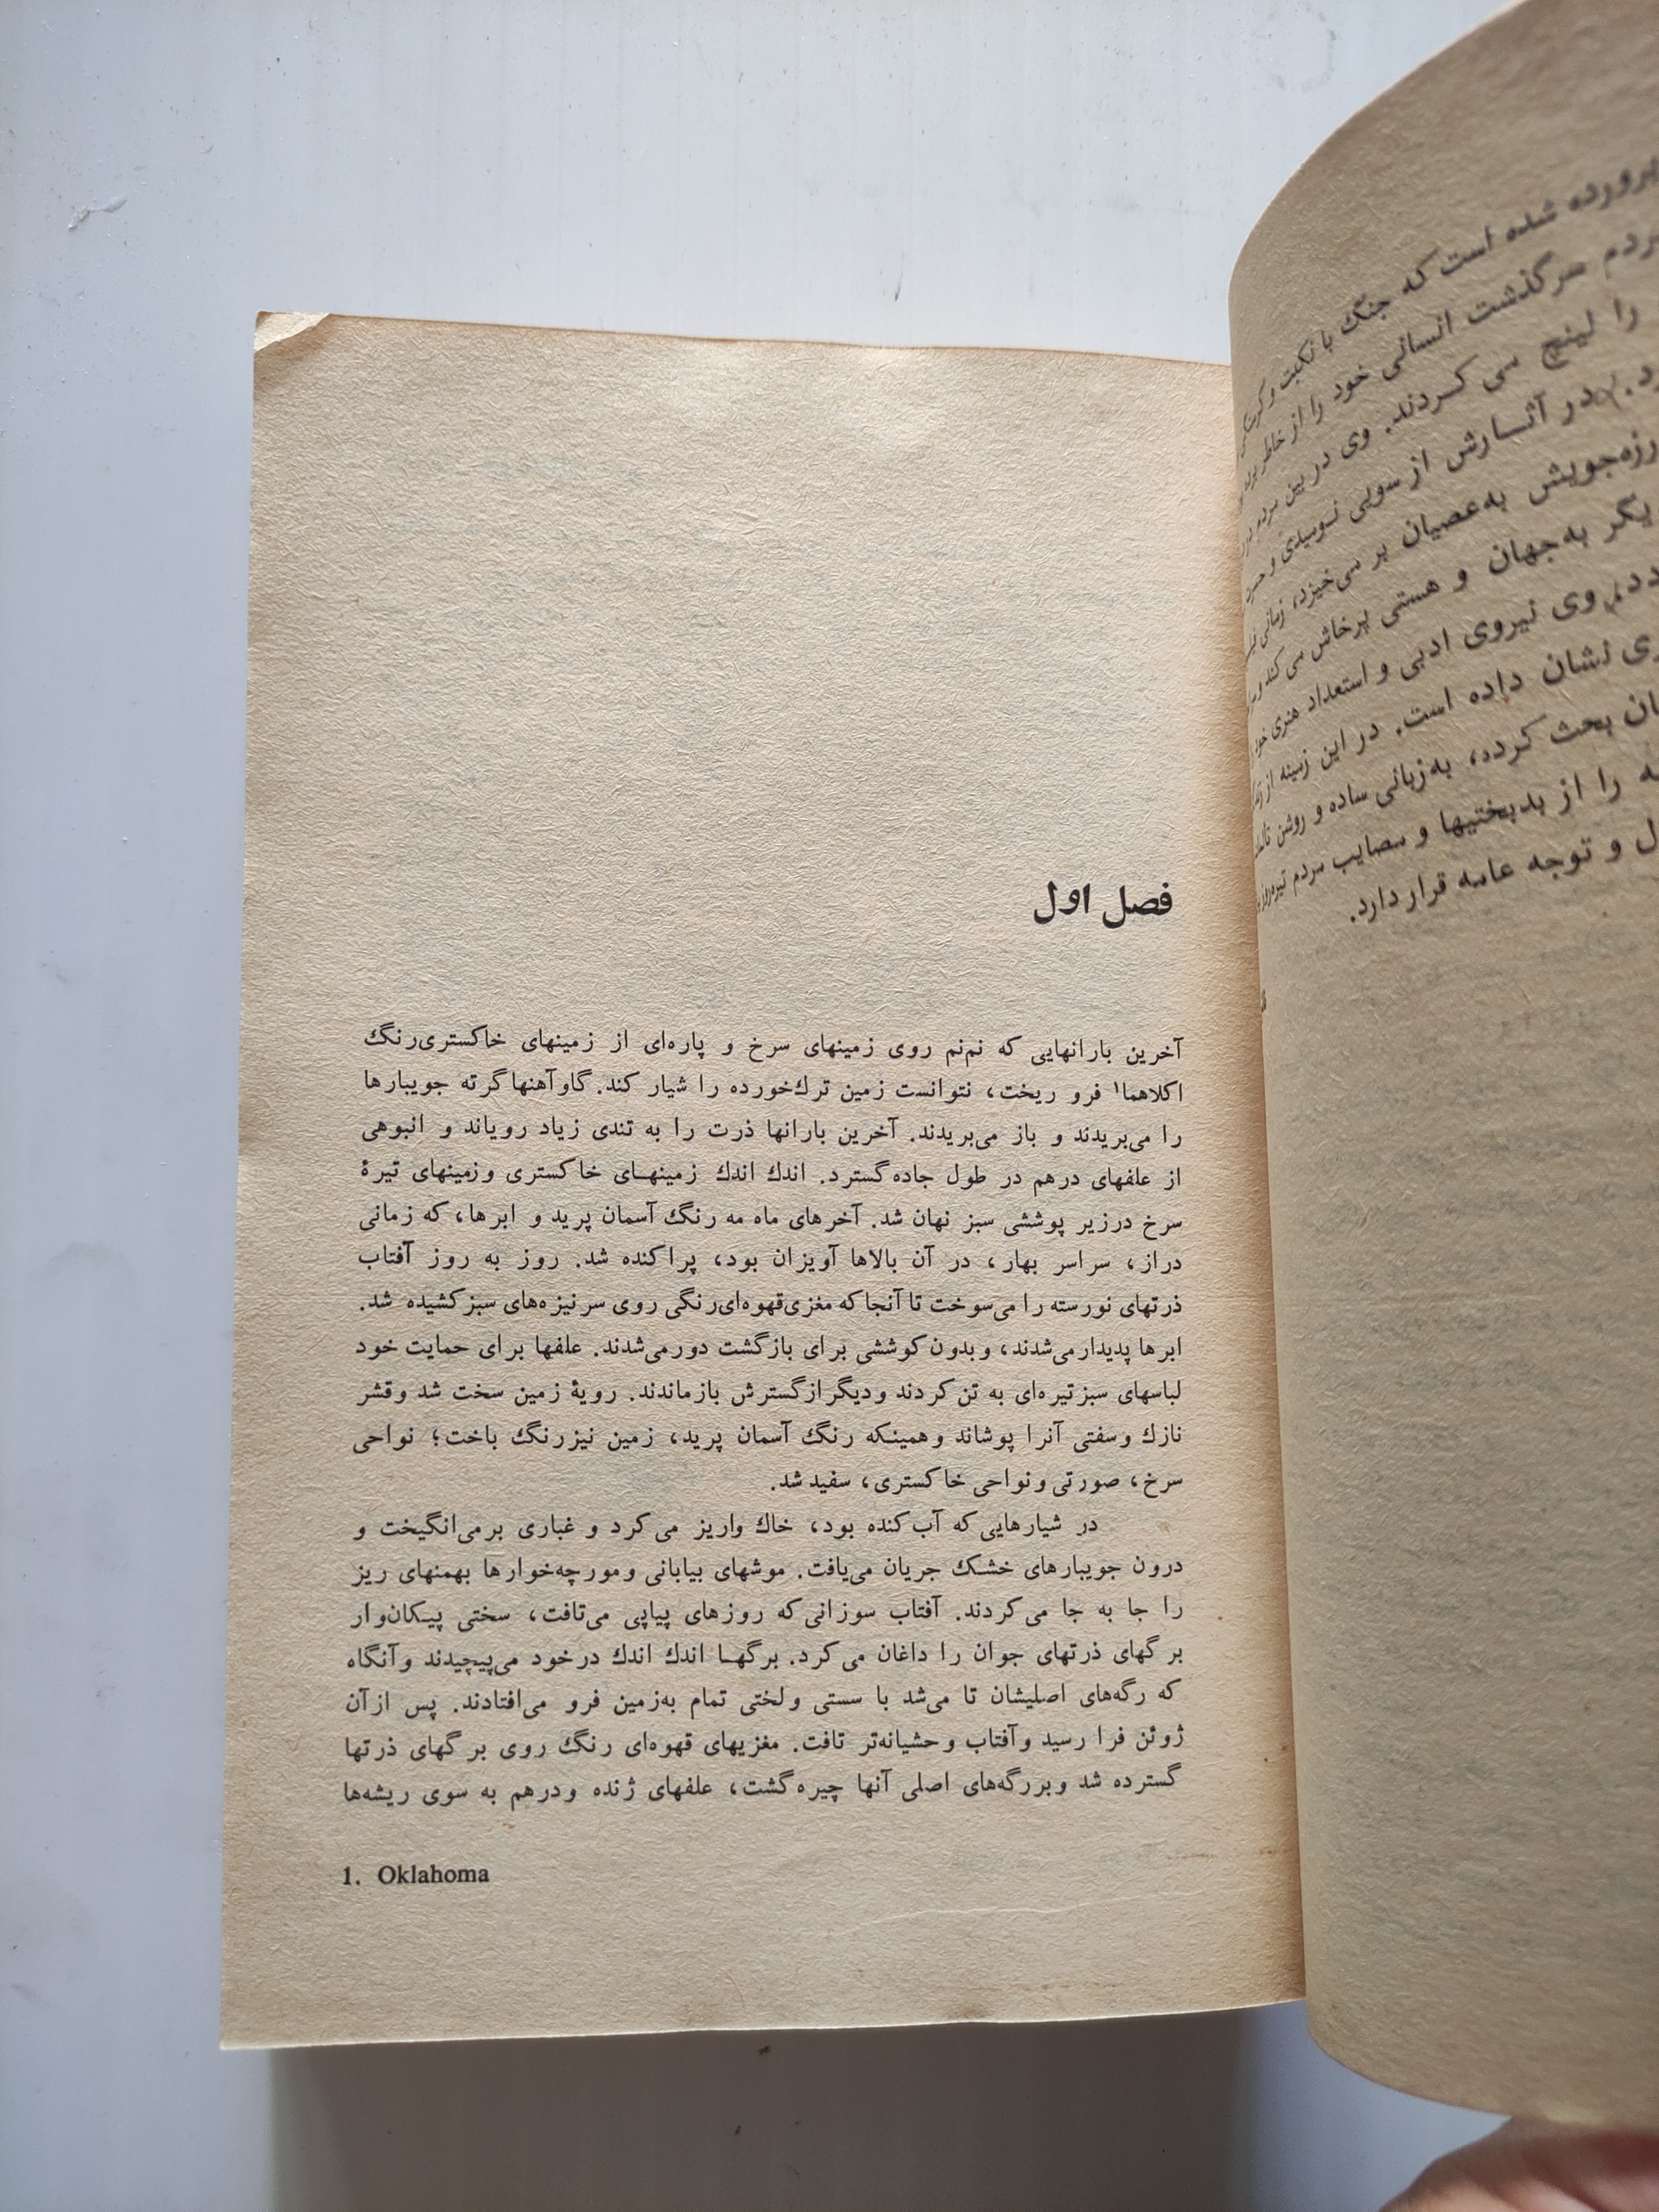 پرورده شده است که جنگ با نکبت و
مردم سرگذشت انسانی خود را از خاطر برده
را لینچ می کردند. وی در بین مردم
در آثارش از سویی نومیدی و
به‌عصیان بر می‌خیزد، زمانی
به‌جهان و هستی پرخاش می کند
وی نیروی ادبی و استعداد هنری
نشان داده است. در این زمینه از
بحث کرده، به‌زبانی ساده و روشن
را از بدبختیها و مصایب مردم
و توجه عامه قرار دارد.
فصل اول
آخرین بارانهایی که نم‌نم روی زمینهای سرخ و پاره‌ای از زمینهای خاکستری‌رنگ
اکلاهما۱ فرو ریخت، نتوانست زمین ترك‌خورده را شیار کند. گاوآهنها گرته جویبارها
را می‌بریدند و باز می‌بریدند. آخرین بارانها ذرت را به تندی زیاد رویاند و انبوهی
از علفهای درهم در طول جاده گسترد. اندك اندك زمینهـای خاکستری وزمینهای تیرۀ
سرخ درزیر پوششی سبز نهان شد. آخرهای ماه مه رنگ آسمان پرید و ابرها، که زمانی
دراز، سراسر بهار، در آن بالاها آویزان بود، پراکنده شد. روز به روز آفتاب
ذرتهای نورسته را می‌سوخت تا آنجا که مغزی‌قهوه‌ای‌رنگی روی سرنیزه‌های سبز کشیده شد.
ابرها پدیدار می‌شدند، و بدون کوششی برای بازگشت دور می‌شدند. علفها برای حمایت خود
لباسهای سبز تیره‌ای به تن کردند و دیگر از گسترش بازماندند. رویۀ زمین سخت شد وقشر
نازك و سفتی آنرا پوشاند و همینکه رنگ آسمان پرید، زمین نیز رنگ باخت؛ نواحی
سرخ، صورتی و نواحی خاکستری، سفید شد.
در شیارهایی که آب کنده بود، خاك واریز می کرد و غباری برمی‌انگیخت و
درون جویبارهای خشک جریان می‌یافت. موشهای بیابانی و مورچه‌خوارها بهمنهای ریز
را جا به جا می‌کردند. آفتاب سوزانی که روزهای پیاپی می‌تافت، سختی پیکان‌وار
برگهای ذرتهای جوان را داغان می کرد. برگهـا اندك اندك در خود می‌پیچیدند و آنگاه
که رگه‌های اصلیشان تا می‌شد با سستی و لختی تمام به‌زمین فرو می‌افتادند. پس از آن
ژوئن فرا رسید و آفتاب وحشیانه‌تر تافت. مغزیهای قهوه‌ای رنگ روی برگهای ذرتها
گسترده شد و بررگه‌های اصلی آنها چیره گشت، علفهای ژنده و درهم به سوی ریشه‌ها
1. Oklahoma